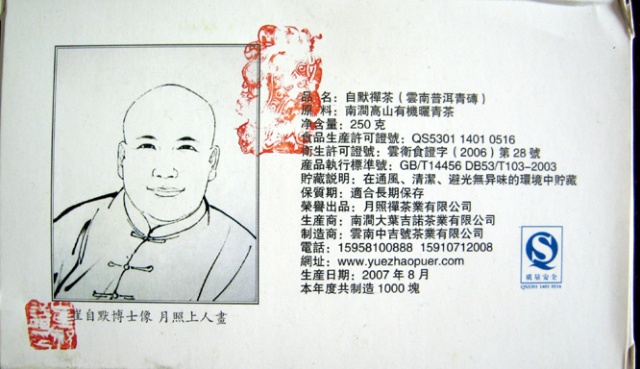 品 名：自默禪茶（雲南普洱青磚）
原 料：南澗高山有機曬青茶
净含量：250 克
食品生産許可證號：QS5301 1401 0516
衛生許可證號：雲衛食證字（2006）第 28 號
産品執行標凖號：GB/T14456 DB53/T103-2003
贮藏説明：在通風、清潔、避光無异味的環境中貯藏
保質期：適合長期保存
榮譽出品：月照禪茶業有限公司
生産商：南澗大葉吉諾茶業有限公司
制造商：雲南中吉號茶業有限公司
電話：15958100888 15910712008
網址：www.yuezhaopuer.com
生産日期：2007 年 8 月
本年度共制造 1000 塊
質量安全
QS5301 1401 0516
崔自默博士像 月照上人畫